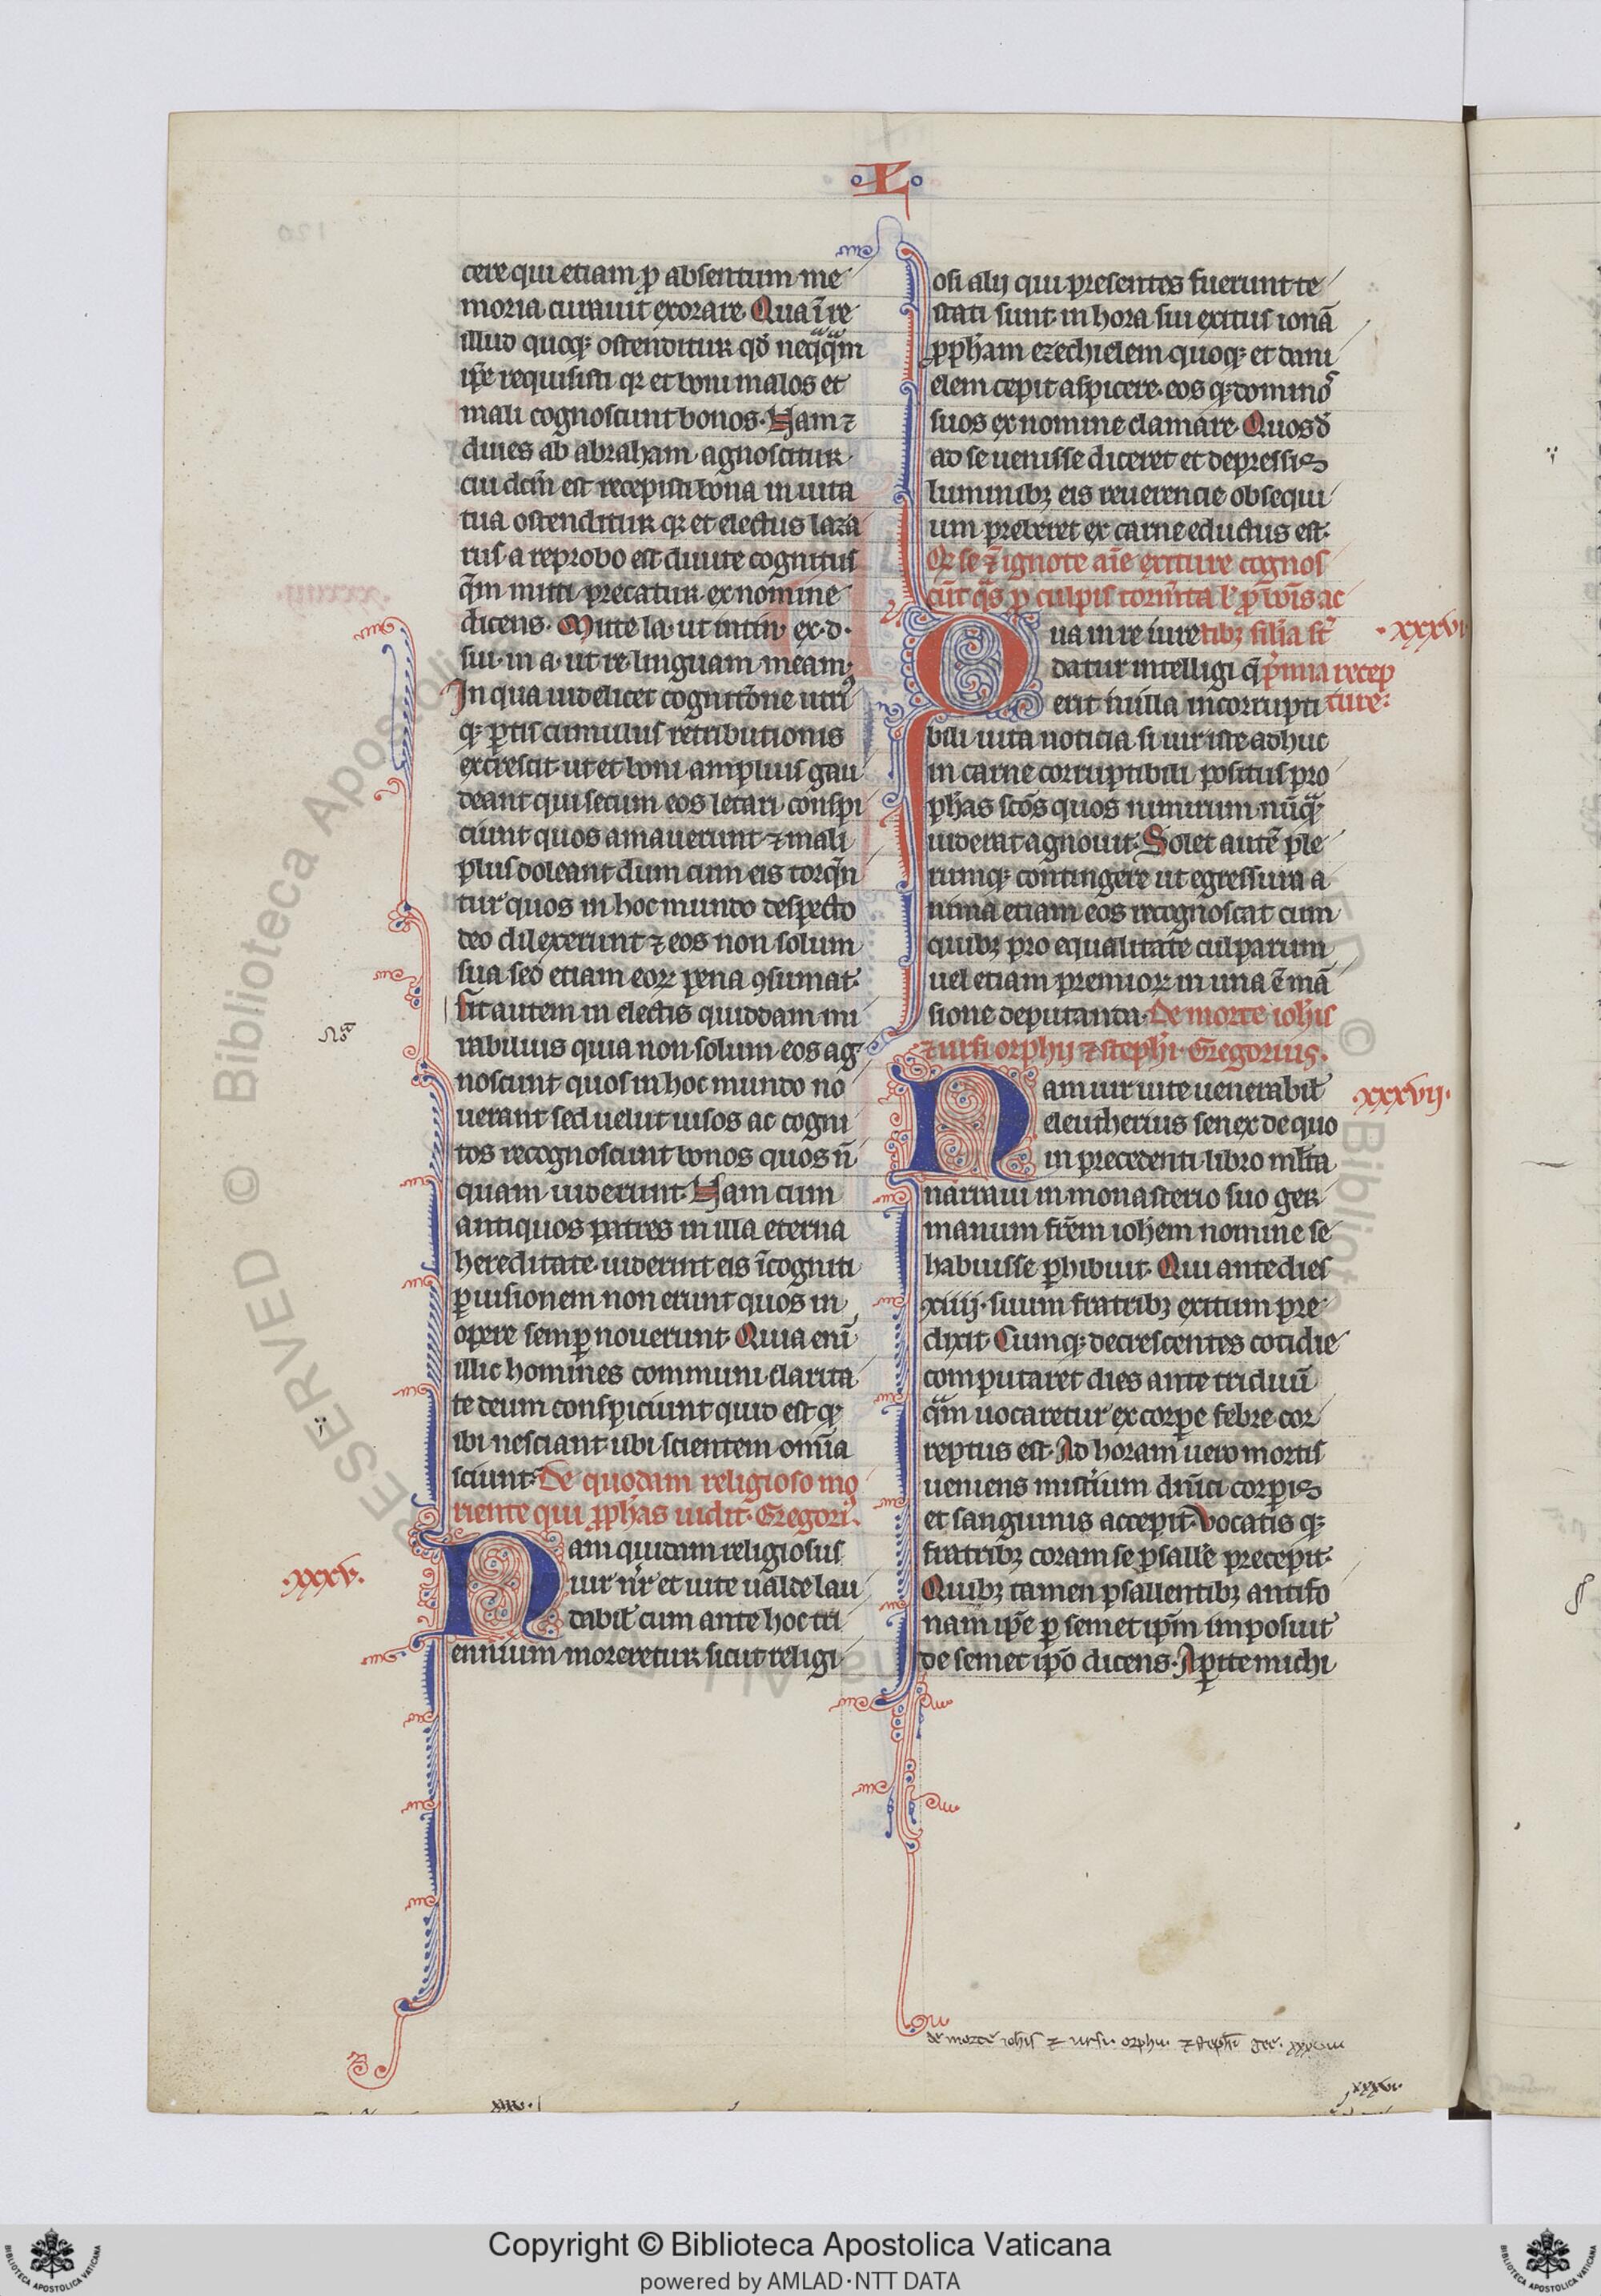 L
cere qui etiam ꝓ absentium me
moria curauit exorare. Qua ī re
illud quoqꝫ ostenditur qđ neq̄q̄m
ip̄e requisisti qꝛ et boni malos et
mali cognoscunt bonos. Nam ⁊
diues ab abraham agnoscitur
cui dc̄m est recepisti bona in uita
tua ostenditur qꝛ et electus laza
rus a reprobo est diuite cognitus
q̄m mitti precatur ex nomine
dicens. Mitte la. ut intin ex. d.
sui. in a. ut re. linguam meam.
In qua uidelicet cognitōne utriꝰ
qꝫ ꝑtis cumulus retributionis
excrescit. ut et boni amplius gau
deant qui secum eos letari conspi
ciunt quos amauerunt ⁊ mali
plus doleant dum cum eis torq̄n
tur quos in hoc mundo despecto
deo dilexerunt ⁊ eos non solum
sua sed etiam eoꝝ pena ꝯsumat.
fit autem in electis quiddam mi
rabilius quia non solum eos ag
noscunt quos in hoc mundo no
uerant sed uelut uisos ac cogni
tos recognoscunt bonos quos n̄
quam uiderunt. Nam cum
antiquos patres in illa eterna
hereditate uiderint eis īcogniti
ꝑ uisionem non erunt quos in
opere semꝑ nouerunt. Quia enī
illic homines communi clarita
te deum conspiciunt quid est qꝫ
ibi nesciant ubi scientem omīa
sciunt. De quodam religioso mo
riente qui ꝓph̄as uidit. Gregoriꝰ.
.xxxv.
Nam quidam religiosus
uir nr̄ et uite ualde lau
dabił cum ante hoc tri
ennium moreretur sicut religi
osi alij qui presentes fuerunt te
stati sunt in hora sui exitus ionā
ꝓph̄am ezechielem quoqꝫ et dani
elem cepit aspicere. eos qꝫ dominoꝰ
suos ex nomine clamare. Quos đ
ad se uenisse diceret et depressis
luminibꝫ eis reuerencie obsequi
um preberet ex carne eductus est.
Qꝛ se ⁊ ignote aīe exiture cognos
cūt q̄s ꝓ culpis tormīta ł ꝓ bōis ac
Qua in re iure tibꝫ silīa st̄
.xxxvi.
datur intelligi q̄ p̄mia recep
erit in illa incorrupti ture.
bili uita noticia si uir iste adhuc
in carne corruptibili positus pro
ph̄as sc̄os quos nimirum nūq̄ꝫ
uiderat agnouit. Solet autē ple
rumqꝫ contingere ut egressura a
nima etiam eos recognoscat cum
quibꝫ pro equalitate culparum
uel etiam premioꝝ in una ē mā
sione deputanda. De morte ioh̄is
⁊ ursi orphij ⁊ steph̄i. Gregorius.
Nam uir uite uenerabił
.xxxvij.
eleutherius senex de quo
in precedenti libro ml̄ta
narraui in monasterio suo ger
manum fr̄em ioh̄em nomine se
habuisse ꝑhibuit. Qui ante dies
xiiij. suum fratribꝫ exitum pre
dixit. Cumqꝫ decrescentes cotidie
computaret dies ante triduū
q̄m uocaretur ex corꝑe febre cor
reptus est. Ad horam uero mortis
ueniens mistīum dn̄ici corꝑis
et sanguinis accepit. Vocatis qꝫ
fratribꝫ coram se psalle precepit.
Quibꝫ tamen psallentibꝫ antifo
nam ip̄e ꝑ semet ip̄m imposuit
de semet ip̄o dicens. Aꝑite michi
de morte ioh̄is ⁊ ursi. orphii. ⁊ steph̄i Gre. xxxvii
xxxvi.
Copyright © Biblioteca Apostolica Vaticana
powered by AMLAD·NTT DATA